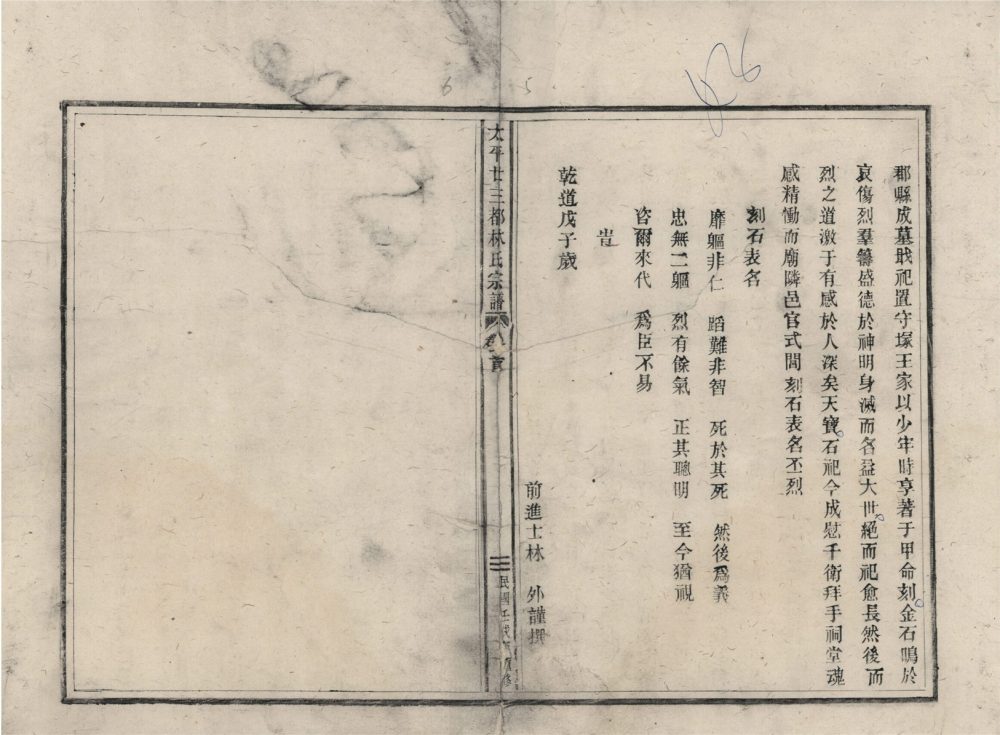 郡縣成墓戝祀置守塚王家以少年時享著于甲命刻金石鳴於
哀傷烈羣籌盛德於神明身滅而名益大世絕而祀愈長然後而
烈之道激于有感於人深矣天寶石祀今成慰千衛拜手祠堂魂
感精慟而廟隣邑官式閭刻石表名不烈
刻石表名
靡軀非仁 蹈難非智 死於其死 然後爲義
忠無二軀 烈有餘氣 正其聰明 至今猶視
咨爾來代 爲臣不易
旹
乾道戊子歲
前進士林 外謹撰
太平廿三都林氏宗譜 卷首
三 民國壬戌 重修
6 5